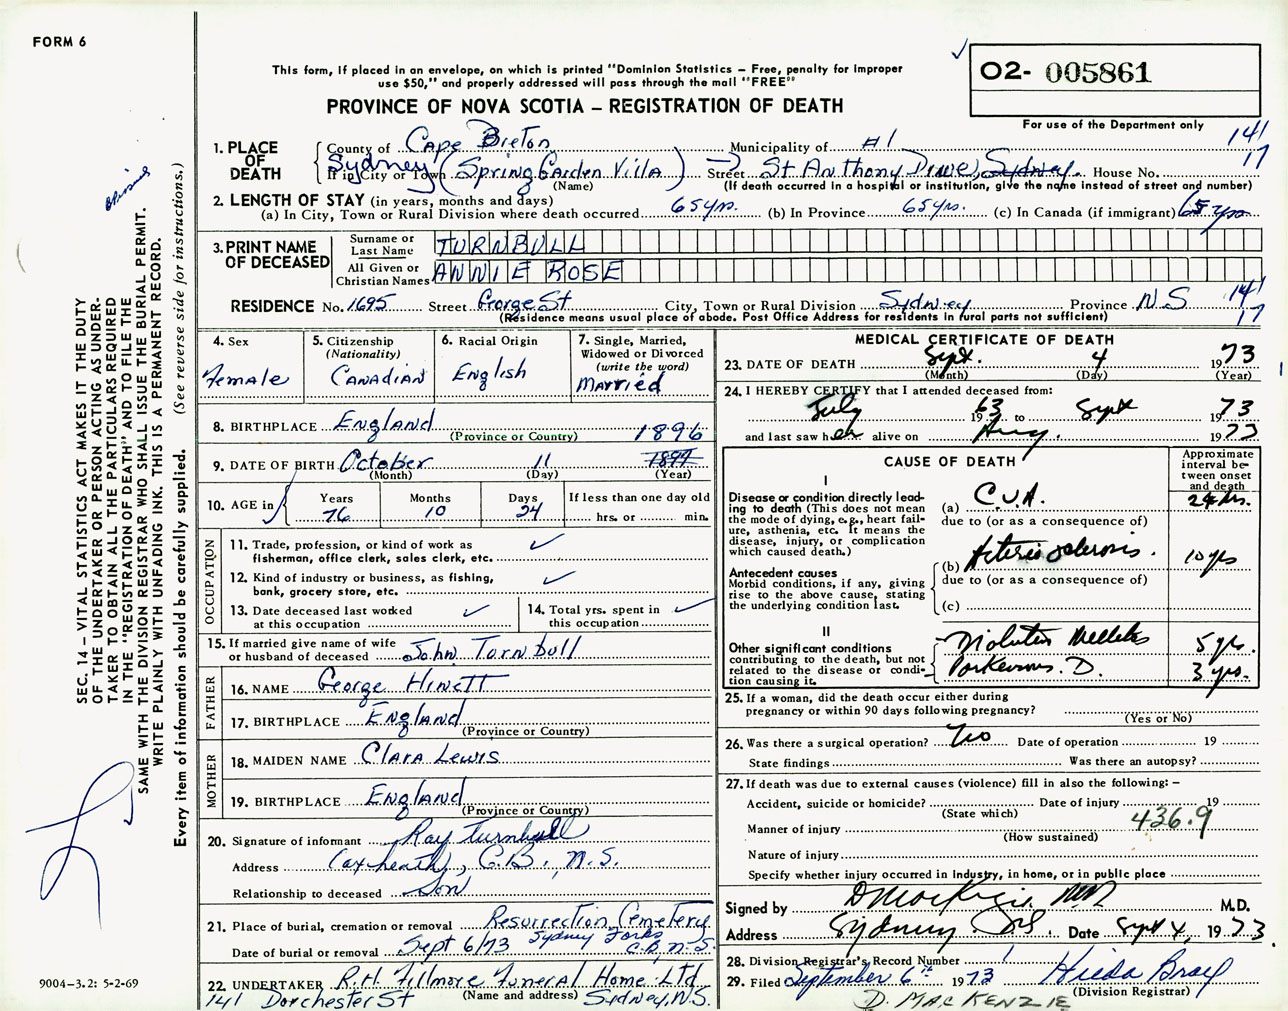 FORM 6
This form, if placed in an envelope, on which is printed "Dominion Statistics – Free, penalty for improper
use $50," and properly addressed will pass through the mail "FREE"
PROVINCE OF NOVA SCOTIA – REGISTRATION OF DEATH
O2- 005861
For use of the Department only
141
17
1. PLACE OF DEATH
County of Cape Breton Municipality of #1
Sydney
If in City or Town (Spring Garden Villa) Street St Anthony Drive, Sydney. House No.
(Name) (If death occurred in a hospital or institution, give the name instead of street and number)
2. LENGTH OF STAY (in years, months and days)
(a) In City, Town or Rural Division where death occurred 65 yrs. (b) In Province 65 yrs. (c) In Canada (if immigrant) 65 yrs
3. PRINT NAME OF DECEASED
Surname or Last Name TURNBULL
All Given or Christian Names ANNIE ROSE
RESIDENCE No. 1695 Street George St City, Town or Rural Division Sydney Province N.S 141
17
(Residence means usual place of abode. Post Office Address for residents in rural parts not sufficient)
4. Sex
Female
5. Citizenship
(Nationality)
Canadian
6. Racial Origin
English
7. Single, Married,
Widowed or Divorced
(write the word)
Married
8. BIRTHPLACE England
(Province or Country)
1896
9. DATE OF BIRTH October 11 1897
(Month) (Day) (Year)
10. AGE in
Years Months Days If less than one day old
76 10 24 hrs. or min.
OCCUPATION
11. Trade, profession, or kind of work as
fisherman, office clerk, sales clerk, etc.
12. Kind of industry or business, as fishing,
bank, grocery store, etc.
13. Date deceased last worked
at this occupation
14. Total yrs. spent in
this occupation
15. If married give name of wife
or husband of deceased John Turnbull
FATHER
16. NAME George Hinett
17. BIRTHPLACE England
(Province or Country)
MOTHER
18. MAIDEN NAME Clara Lewis
19. BIRTHPLACE England
(Province or Country)
20. Signature of informant Ray Turnbull
Address Coxheath, C.B., N.S.
Relationship to deceased Son
21. Place of burial, cremation or removal Resurrection Cemetery
Sydney Forks
Date of burial or removal Sept 6/73 C.B., N.S.
22. UNDERTAKER R.H. Fillmore Funeral Home Ltd
141 Dorchester St (Name and address) Sydney, N.S.
MEDICAL CERTIFICATE OF DEATH
23. DATE OF DEATH Sept. 4 1973
(Month) (Day) (Year)
24. I HEREBY CERTIFY that I attended deceased from:
July 1963 to Sept 1973
and last saw her alive on Aug. 1973
CAUSE OF DEATH
Approximate
interval be-
tween onset
and death
I
Disease or condition directly lead-
ing to death (This does not mean
the mode of dying, e.g., heart fail-
ure, asthenia, etc. It means the
disease, injury, or complication
which caused death.)
(a) C.V.A. 24 hrs.
due to (or as a consequence of)
Antecedent causes
Morbid conditions, if any, giving
rise to the above cause, stating
the underlying condition last.
(b) Arteriosclerosis. 10 yrs
due to (or as a consequence of)
(c)
II
Other significant conditions
contributing to the death, but not
related to the disease or condi-
tion causing it.
Diabetes Mellitus 5 yrs.
Parkinsons D. 3 yrs.
25. If a woman, did the death occur either during
pregnancy or within 90 days following pregnancy?
(Yes or No)
26. Was there a surgical operation? No Date of operation 19
State findings Was there an autopsy?
27. If death was due to external causes (violence) fill in also the following: –
Accident, suicide or homicide? Date of injury 19
(State which)
Manner of injury 436.9
(How sustained)
Nature of injury
Specify whether injury occurred in industry, in home, or in public place
Signed by D MacKenzie MD M.D.
Address Sydney NS. Date Sept 4, 1973.
28. Division Registrar's Record Number
29. Filed September 6th 1973 Hilda Bray
(Division Registrar)
D. MACKENZIE
SEC. 14 – VITAL STATISTICS ACT MAKES IT THE DUTY
OF THE UNDERTAKER OR PERSON ACTING AS UNDER-
TAKER TO OBTAIN ALL THE PARTICULARS REQUIRED
IN THE "REGISTRATION OF DEATH" AND TO FILE THE
SAME WITH THE DIVISION REGISTRAR WHO SHALL ISSUE THE BURIAL PERMIT.
WRITE PLAINLY WITH UNFADING INK. THIS IS A PERMANENT RECORD.
Every item of information should be carefully supplied. (See reverse side for instructions.)
9004–3.2: 5-2-69